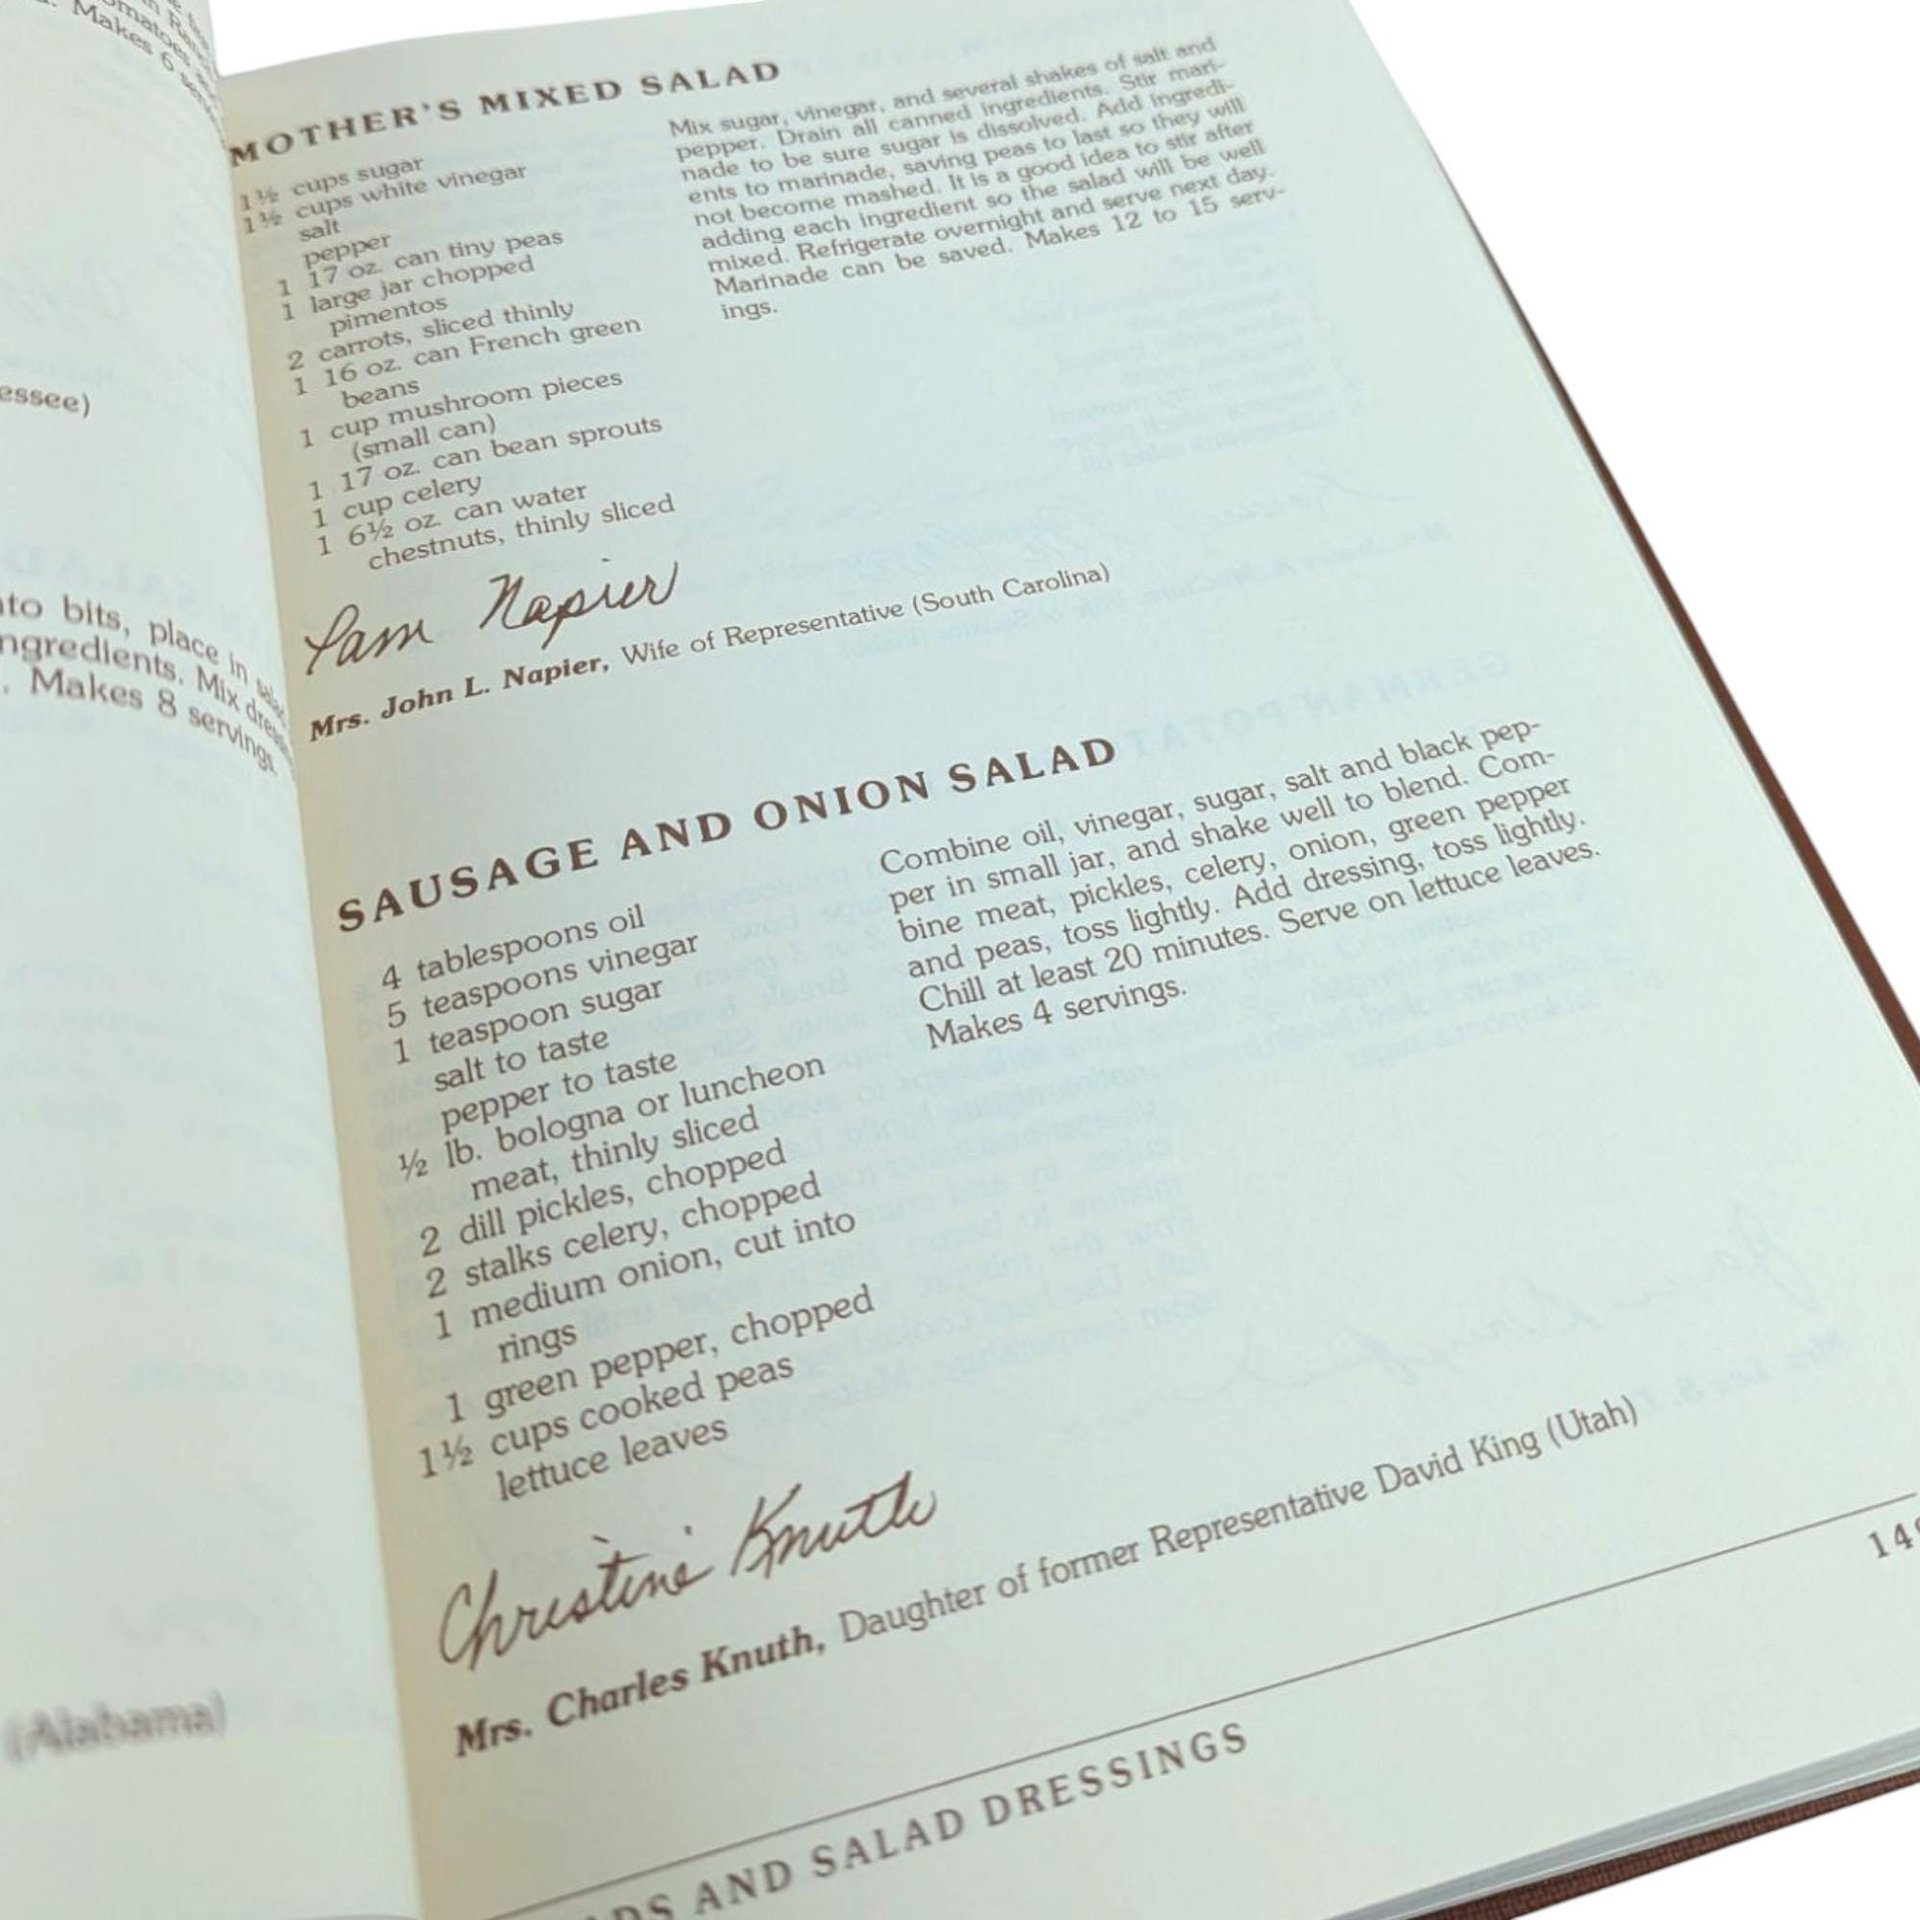 Makes 6
essee)
to bits, place in
ngredients. Mix
. Makes 8 servings.
(Alabama)
MOTHER'S MIXED SALAD
1½ cups sugar
1½ cups white vinegar
salt
pepper
1 17 oz. can tiny peas
1 large jar chopped
pimentos
2 carrots, sliced thinly
1 16 oz. can French green
beans
1 cup mushroom pieces
(small can)
1 17 oz. can bean sprouts
1 cup celery
1 6½ oz. can water
chestnuts, thinly sliced
Mix sugar, vinegar, and several shakes of salt and
pepper. Drain all canned ingredients. Stir mari-
nade to be sure sugar is dissolved. Add ingredi-
ents to marinade, saving peas to last so they will
not become mashed. It is a good idea to stir after
adding each ingredient so the salad will be well
mixed. Refrigerate overnight and serve next day.
Marinade can be saved. Makes 12 to 15 serv-
ings.
Pam Napier
Mrs. John L. Napier, Wife of Representative (South Carolina)
SAUSAGE AND ONION SALAD
4 tablespoons oil
5 teaspoons vinegar
1 teaspoon sugar
salt to taste
pepper to taste
½ lb. bologna or luncheon
meat, thinly sliced
2 dill pickles, chopped
2 stalks celery, chopped
1 medium onion, cut into
rings
1 green pepper, chopped
1½ cups cooked peas
lettuce leaves
Combine oil, vinegar, sugar, salt and black pep-
per in small jar, and shake well to blend. Com-
bine meat, pickles, celery, onion, green pepper
and peas, toss lightly. Add dressing, toss lightly.
Chill at least 20 minutes. Serve on lettuce leaves.
Makes 4 servings.
Christine Knuth
Mrs. Charles Knuth, Daughter of former Representative David King (Utah)
ADS AND SALAD DRESSINGS